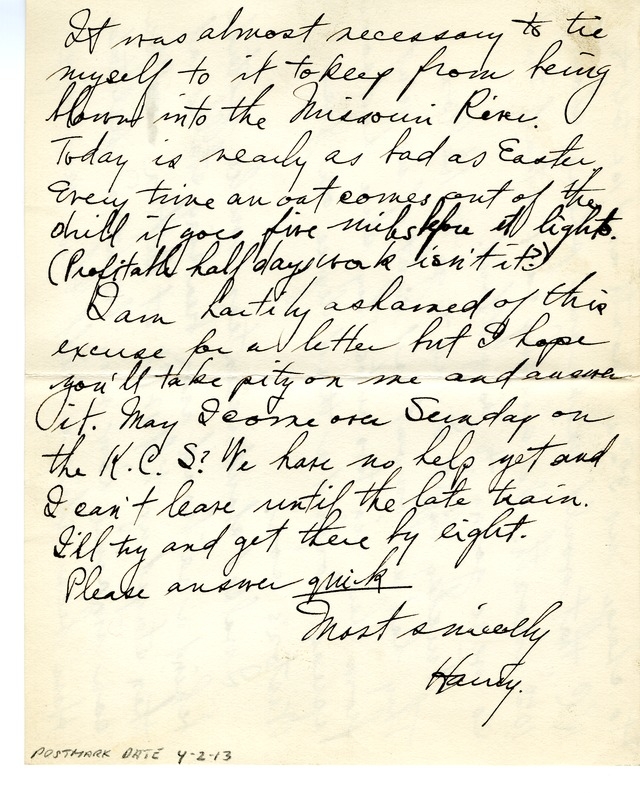 It was almost necessary to tie
myself to it to keep from being
blown into the Missouri River.
Today is nearly as bad as Easter
Every time an oat comes out of the
drill it goes five miles before it lights.
(Profitable half days work isn't it?)
I am hartily ashamed of this
excuse for a letter but I hope
you'll take pity on me and answer
it. May I come over Sunday on
the K.C.S? We have no help yet and
I can't leave until the late train.
I'll try and get there by eight.
Please answer quick
Most sincerely
Harry.
POSTMARK DATE 4-2-13